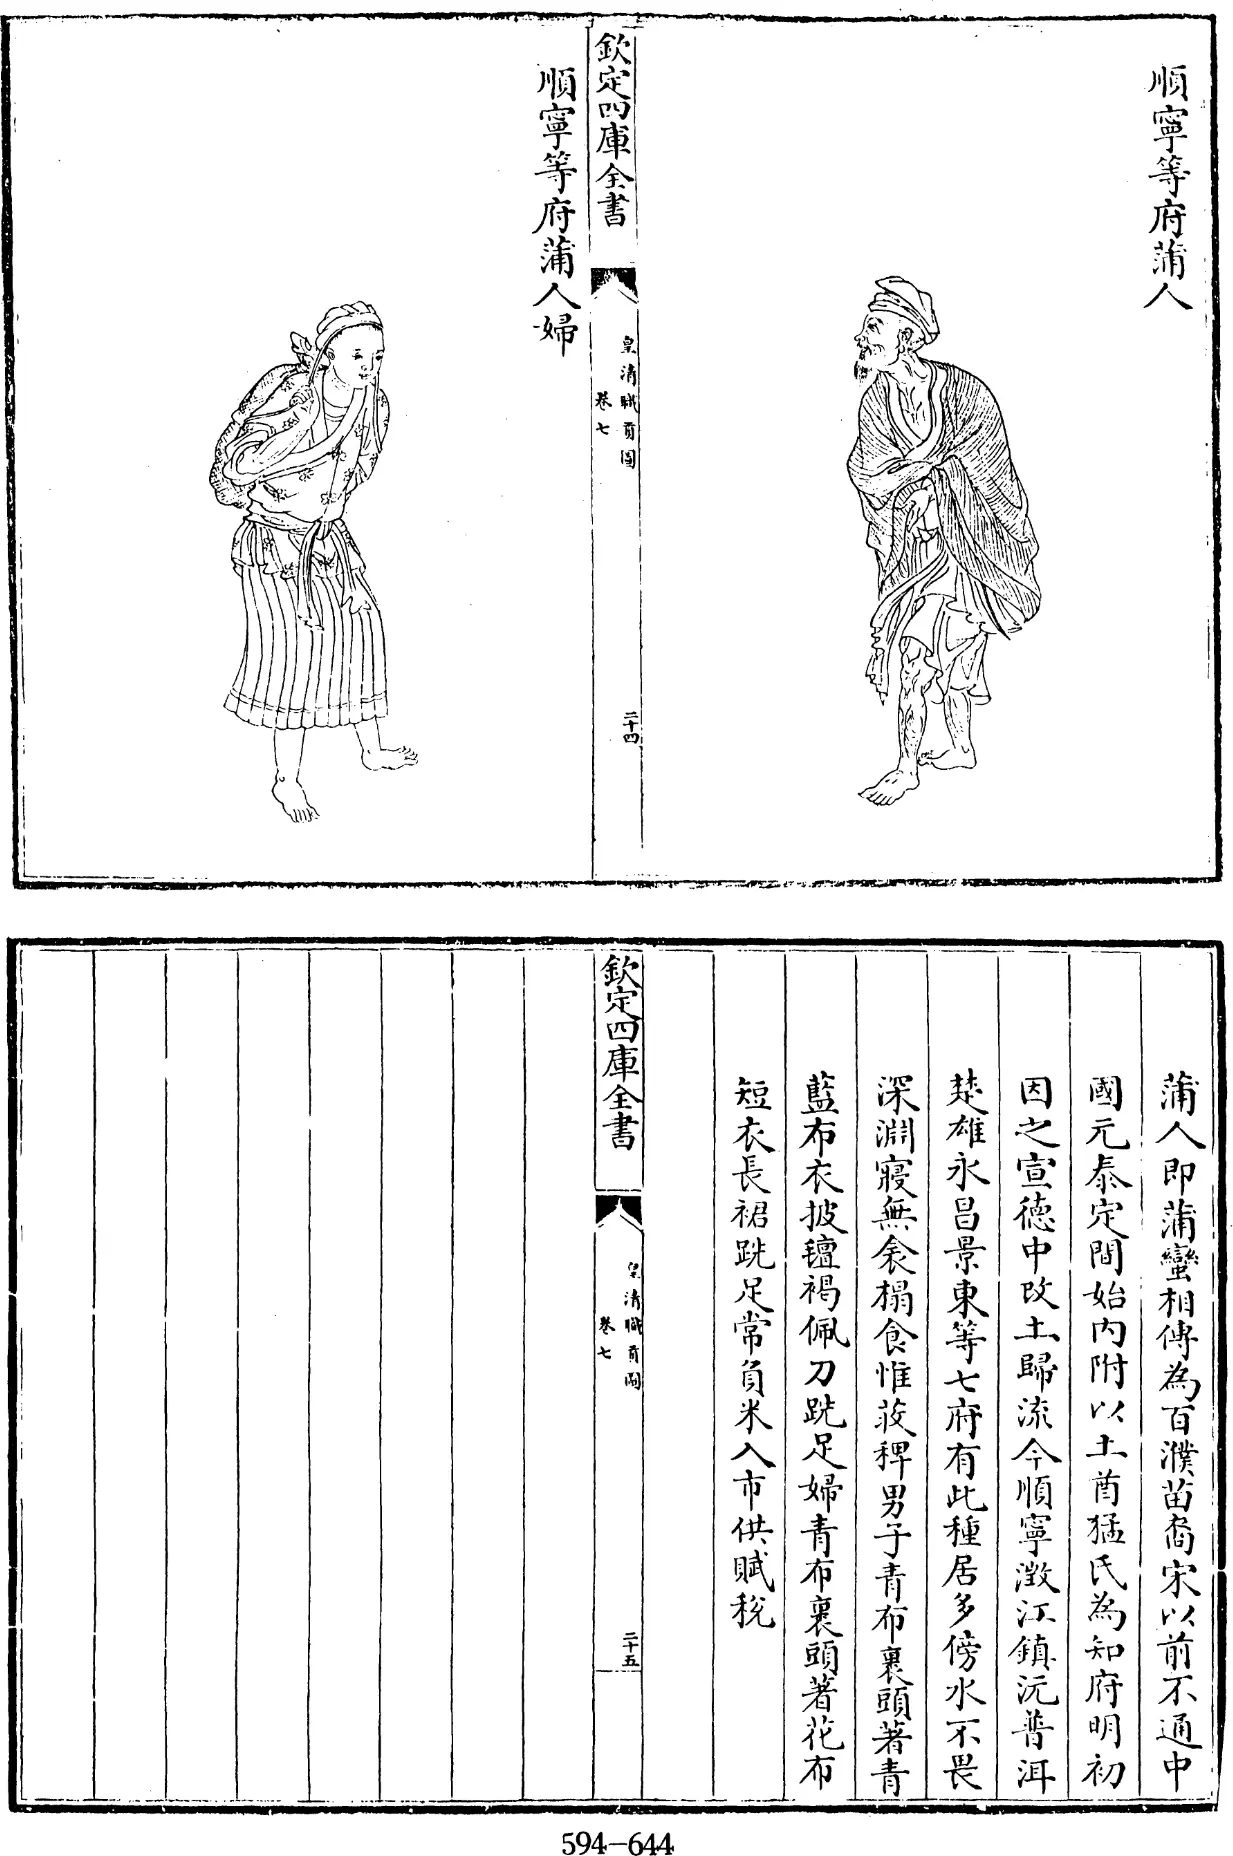 順寧等府蒲人
欽定四庫全書
皇清職貢圖
卷七
二十四
順寧等府蒲人婦
蒲人即蒲蠻相傳為百濮苗裔宋以前不通中
國元泰定間始内附以土酋猛氏為知府明初
因之宣德中改土歸流今順寧澂江鎮沅普洱
楚雄永昌景東等七府有此種居多傍水不畏
深淵寢無衾榻食惟荍稗男子青布裹頭著青
藍布衣披氊褐佩刀跣足婦青布裹頭著花布
短衣長裙跣足常負米入市供賦稅
欽定四庫全書
皇清職貢圖
卷七
二十五
594-644